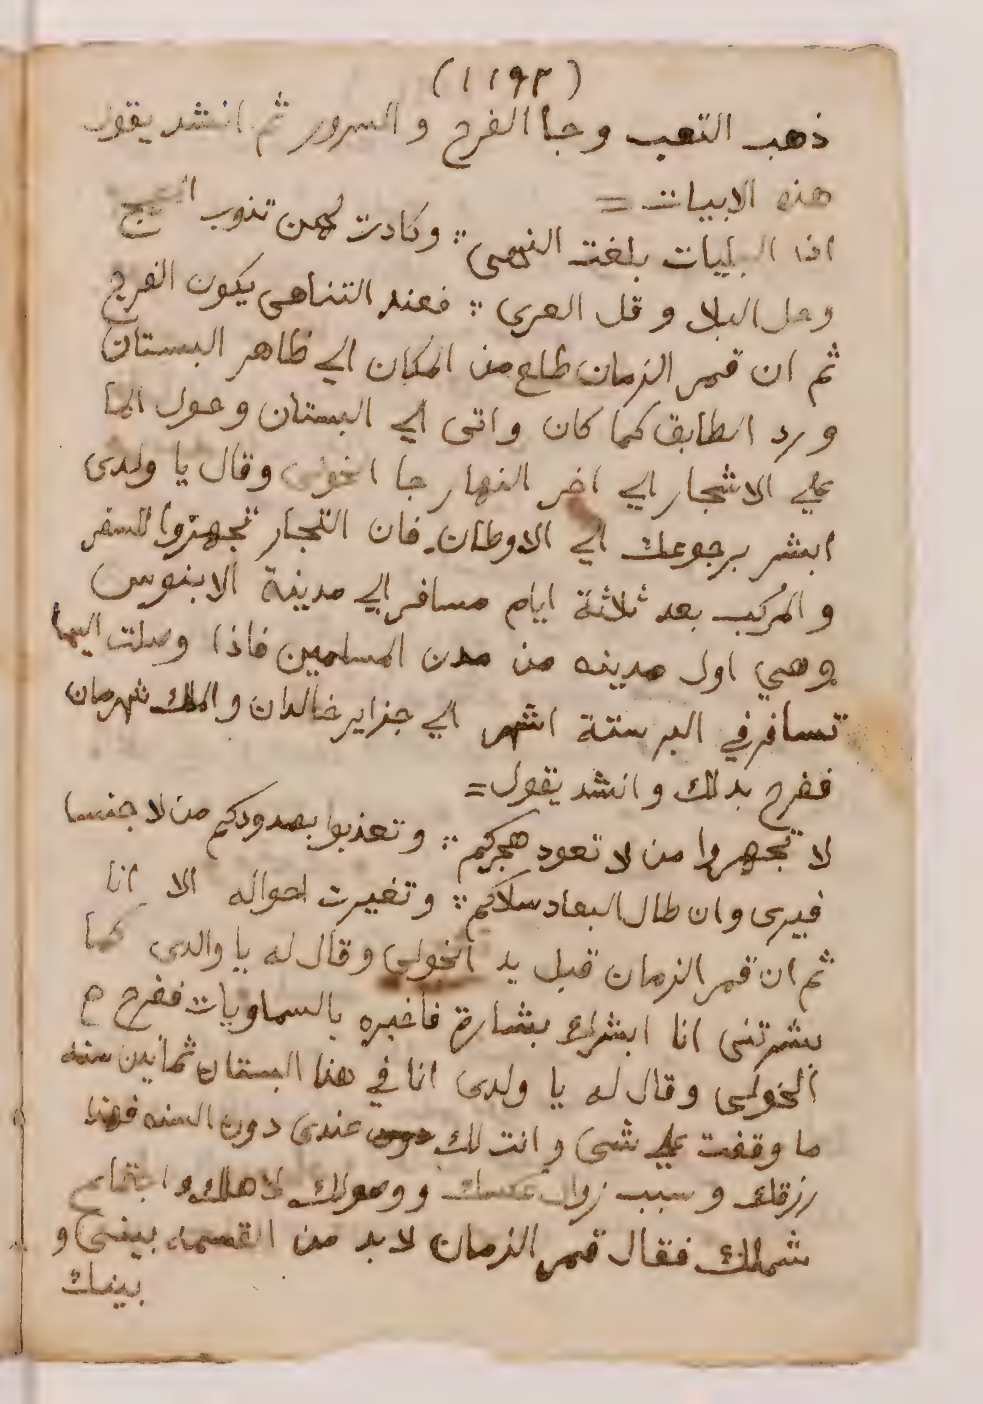 (١١٩٣)
ذهب التعب وجا الفرح و السرور ثم انشد يقول
هذه الابيات =
اذا البليات بلغت النهى : وكادت لهن تذوب المهج
وحل البلا وقل العرى : فعند التناهى يكون الفرج
ثم ان قمر الزمان طلع من المكان الي ظاهر البستان
ورد الطابق كما كان واتى الي البستان وحول الما
علي الاشجار الي اخر النهار جا الخولى وقال يا ولدى
ابشر برجوعك الي الاوطان فان التجار تجهزوا للسفر
و المركب بعد ثلاثة ايام مسافر الي مدينة الابنوس
وهي اول مدينه من مدن المسلمين فاذا وصلت اليها
تسافر في البر ستة اشهر الي جزاير خالدان والملك شهرمان
ففرح بدلك وانشد يقول =
لا تهجروا من لا تعود هجركم : وتعذبوا بصدودكم من لا جنسا
فيرى وان طال البعاد سلاكم : وتغيرت احواله الا انا
ثم ان قمر الزمان قبل يد الخولى وقال له يا والدى كما
بشرتنى انا ابشرك بشارة فاخبره بالسماويات ففرح
الخولى وقال له يا ولدى انا في هذا البستان ثمانين سنه
ما وقفت علي شى وانت لك عندى دون السنه فهذا
رزقك وسبب زوال عكسك ووصولك لاهلك واجتماع
شملك فقال قمر الزمان لابد من القسمه بينى و
بينك